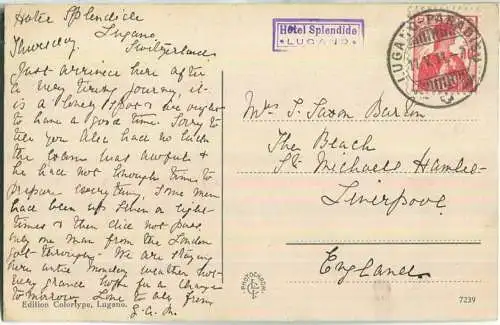 Hotel Splendide
Lugano
Thursday Switzerland
Just arrived here after
a very tiring journey, it
is a lovely spot & we ought
to have a good time. Sorry to
tell you Alec had no luck
the Exam was awful &
he had not enough time to
prepare everything, some men
had been up seven or eight
times & then did not pass,
only one man from the London
got through. We are staying
here until Monday weather hot
every chance for a change
tomorrow Love to all from
J.C.M.
Edition Colortype, Lugano.
Hotel Splendide
LUGANO
LUGANO-PARADISO
HELVETIA
Mrs J. Saxon Barton
The Beach
St Michaels Hamlet
Liverpool
England
PHOTOCHROM
7239